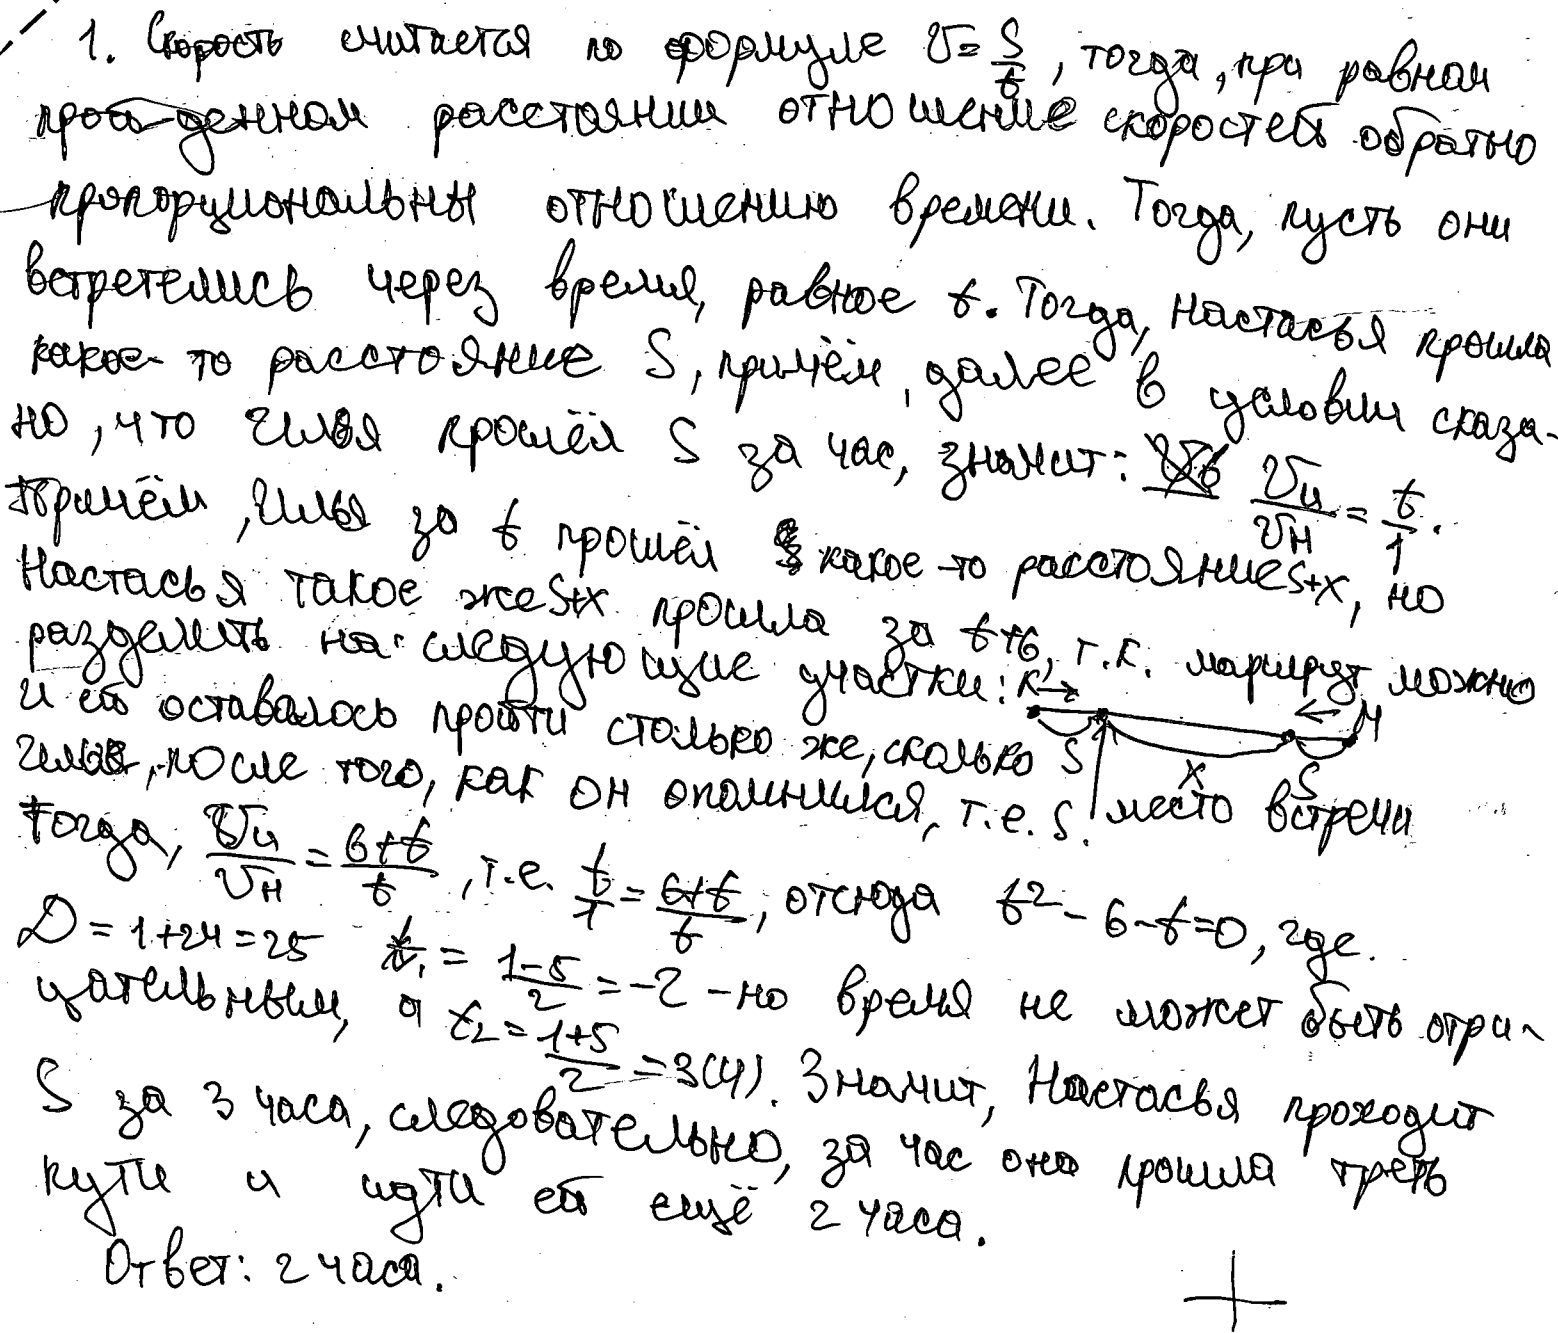 1. Скорость считается по формуле V=S/t, тогда, при равном
пройденном расстоянии отношение скоростей обратно
пропорциональны отношению времени. Тогда, пусть они
встретелись через время, равное t. Тогда, Настасья прошла
какое-то расстояние S, причём, далее в условии сказа-
но, что Илья прошёл S за час, значит: Vи/Vн = t/1.
Причём, Илья за t прошёл какое-то расстояние S+x, но
Настасья такое же S+x прошла за t+6, т.к. маршрут можно
разделить на следующие участки: К→ ← М
S x S место встречи
и ей оставалось пройти столько же, сколько
Илье, после того, как он опомнился, т.е. S.
Тогда, Vи/Vн = 6+t/t, т.е. t/1 = 6+t/t, отсюда t²-6-t=0, где
D=1+24=25 t₁ = 1-5/2 = -2 - но время не может быть отри-
цательным, а t₂ = 1+5/2 = 3(ч). Значит, Настасья проходит
S за 3 часа, следовательно, за час она прошла треть
пути и идти ей ещё 2 часа.
Ответ: 2 часа.
+